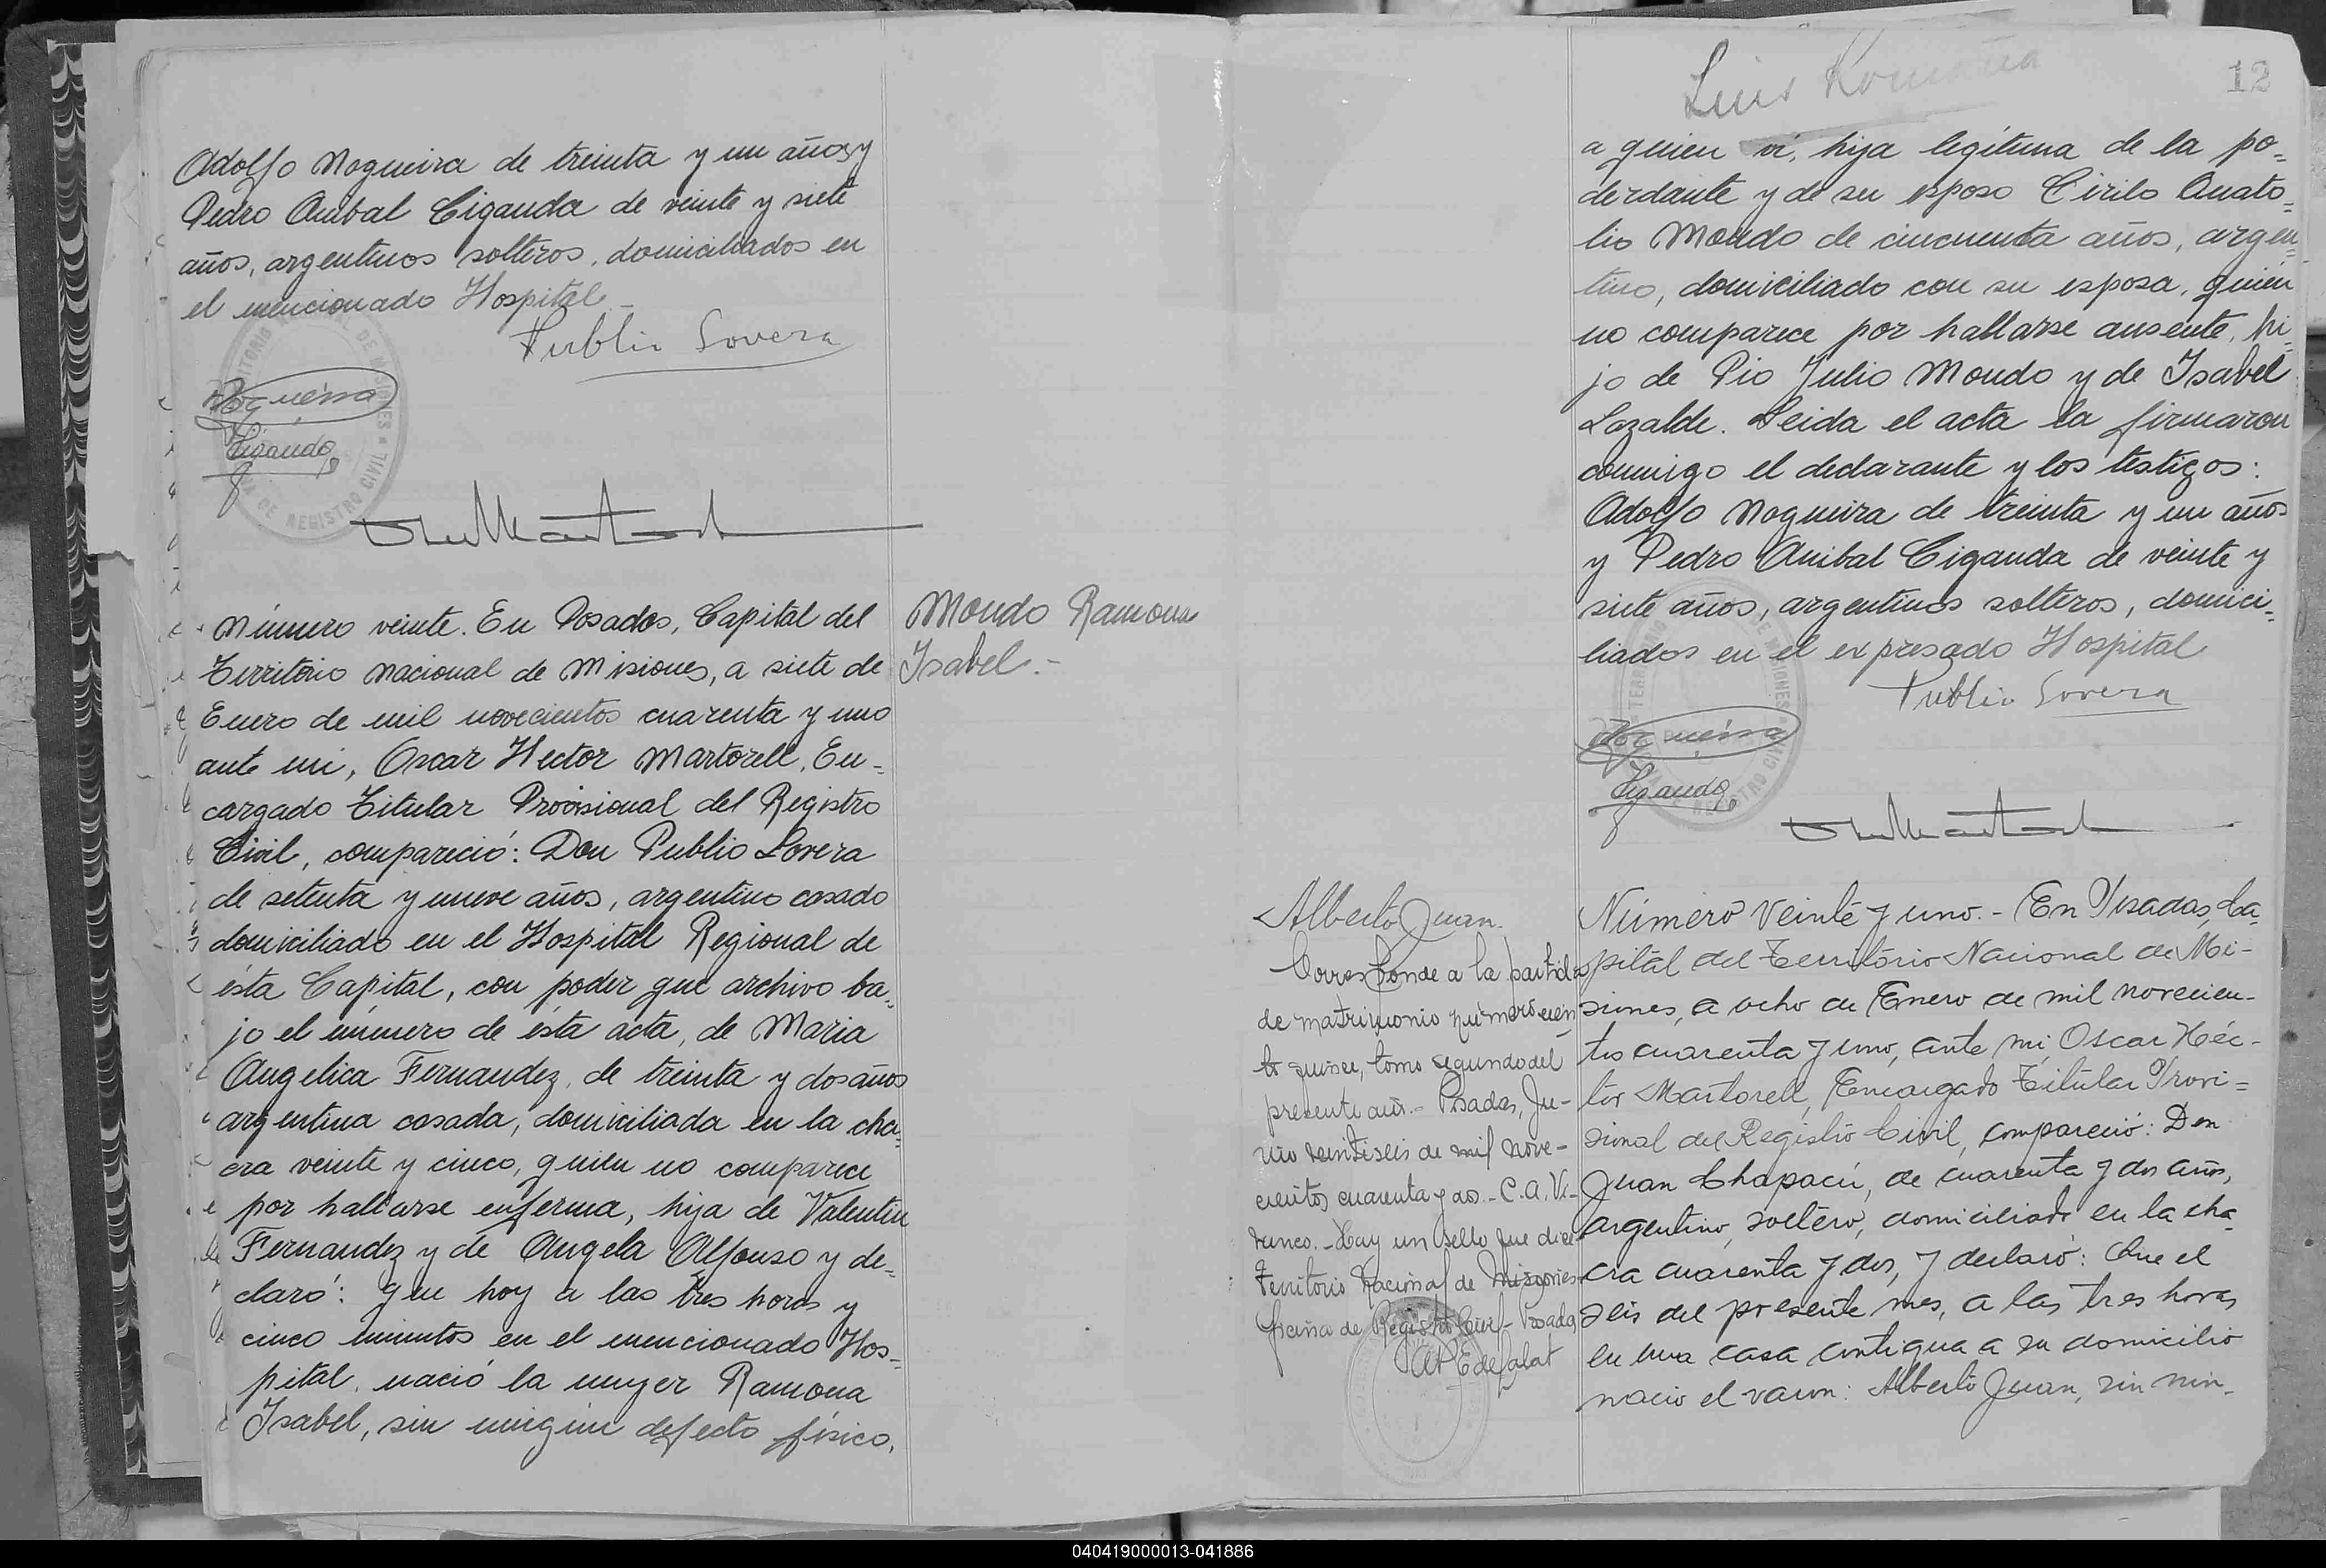 Adolfo Nogueira de treinta y un años y
Pedro Anibal Ciganda de veinte y siete
años, argentinos solteros, domiciliados en
el mencionado Hospital
Publio Lovera
Nogueira
Ciganda
Número veinte. En Posadas, Capital del
Territorio Nacional de Misiones, a siete de
Enero de mil novecientos cuarenta y uno
ante mi, Oscar Hector Martorell, En-
cargado Titular Provisional del Registro
Civil, compareció: Don Publio Lovera
de setenta y nueve años, argentino casado
domiciliado en el Hospital Regional de
ésta Capital, con poder que archivo ba-
jo el número de ésta acta, de Maria
Angelica Fernandez, de treinta y dos años
argentina casada, domiciliada en la cha-
cra veinte y cinco, quien no comparece
por hallarse enferma, hija de Valentin
Fernandez y de Angela Alfonso y de-
claró: que hoy a las tres horas y
cinco minutos en el mencionado Hos-
pital, nació la mujer Ramona
Isabel, sin ningún defecto físico,
Mondo Ramona
Isabel.-
Luis Romaña
12
a quien vi, hija legítima de la po-
derdante y de su esposo Cirilo Anato-
lio Mondo de cincuenta años, argen-
tino, domiciliado con su esposa, quien
no comparece por hallarse ausente, hi-
jo de Pio Julio Mondo y de Isabel
Lazalde. Leida el acta la firmaron
conmigo el declarante y los testigos:
Adolfo Nogueira de treinta y un años
y Pedro Anibal Ciganda de veinte y
siete años, argentinos solteros, domici-
liados en el expresado Hospital
Publio Lovera
Nogueira
Ciganda
Alberto Juan.
Corresponde a la partida
de matrimonio número cien
to quince, tomo segundo del
presente año.- Posadas, Ju-
nio veintiseis de mil nove-
cientos cuarenta y dos.- C.A. Vi-
.- Hay un sello que dice
Territorio Nacional de Misiones
Oficina de Registro Civil - Posadas
Número Veinte y uno.- En Posadas, Ca-
pital del Territorio Nacional de Mi-
siones, a ocho de Enero de mil novecien-
tos cuarenta y uno, ante mi, Oscar Héc-
tor Martorell, Encargado Titular Provi-
sional del Registro Civil, compareció: Don
Juan Chapacú, de cuarenta y dos años,
argentino, soltero, domiciliado en la cha-
cra cuarenta y dos, y declaró: Que el
seis del presente mes, a las tres horas
en una casa contigua a su domicilio
nació el varon: Alberto Juan, sin nin-
040419000013-041886